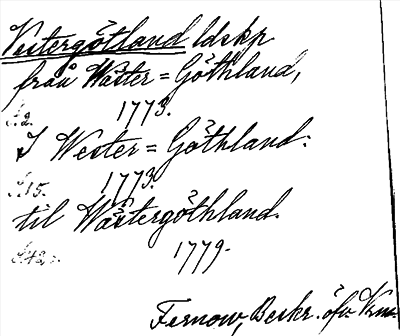 Vestergötland ldskp
från Wäster=Göthland,
S.2. 1773.
I Wester=Göthland:
S.15. 1773.
til Wästergöthland.
S.42. 1779.
Fernow, Beskr. öfv. Vrm.